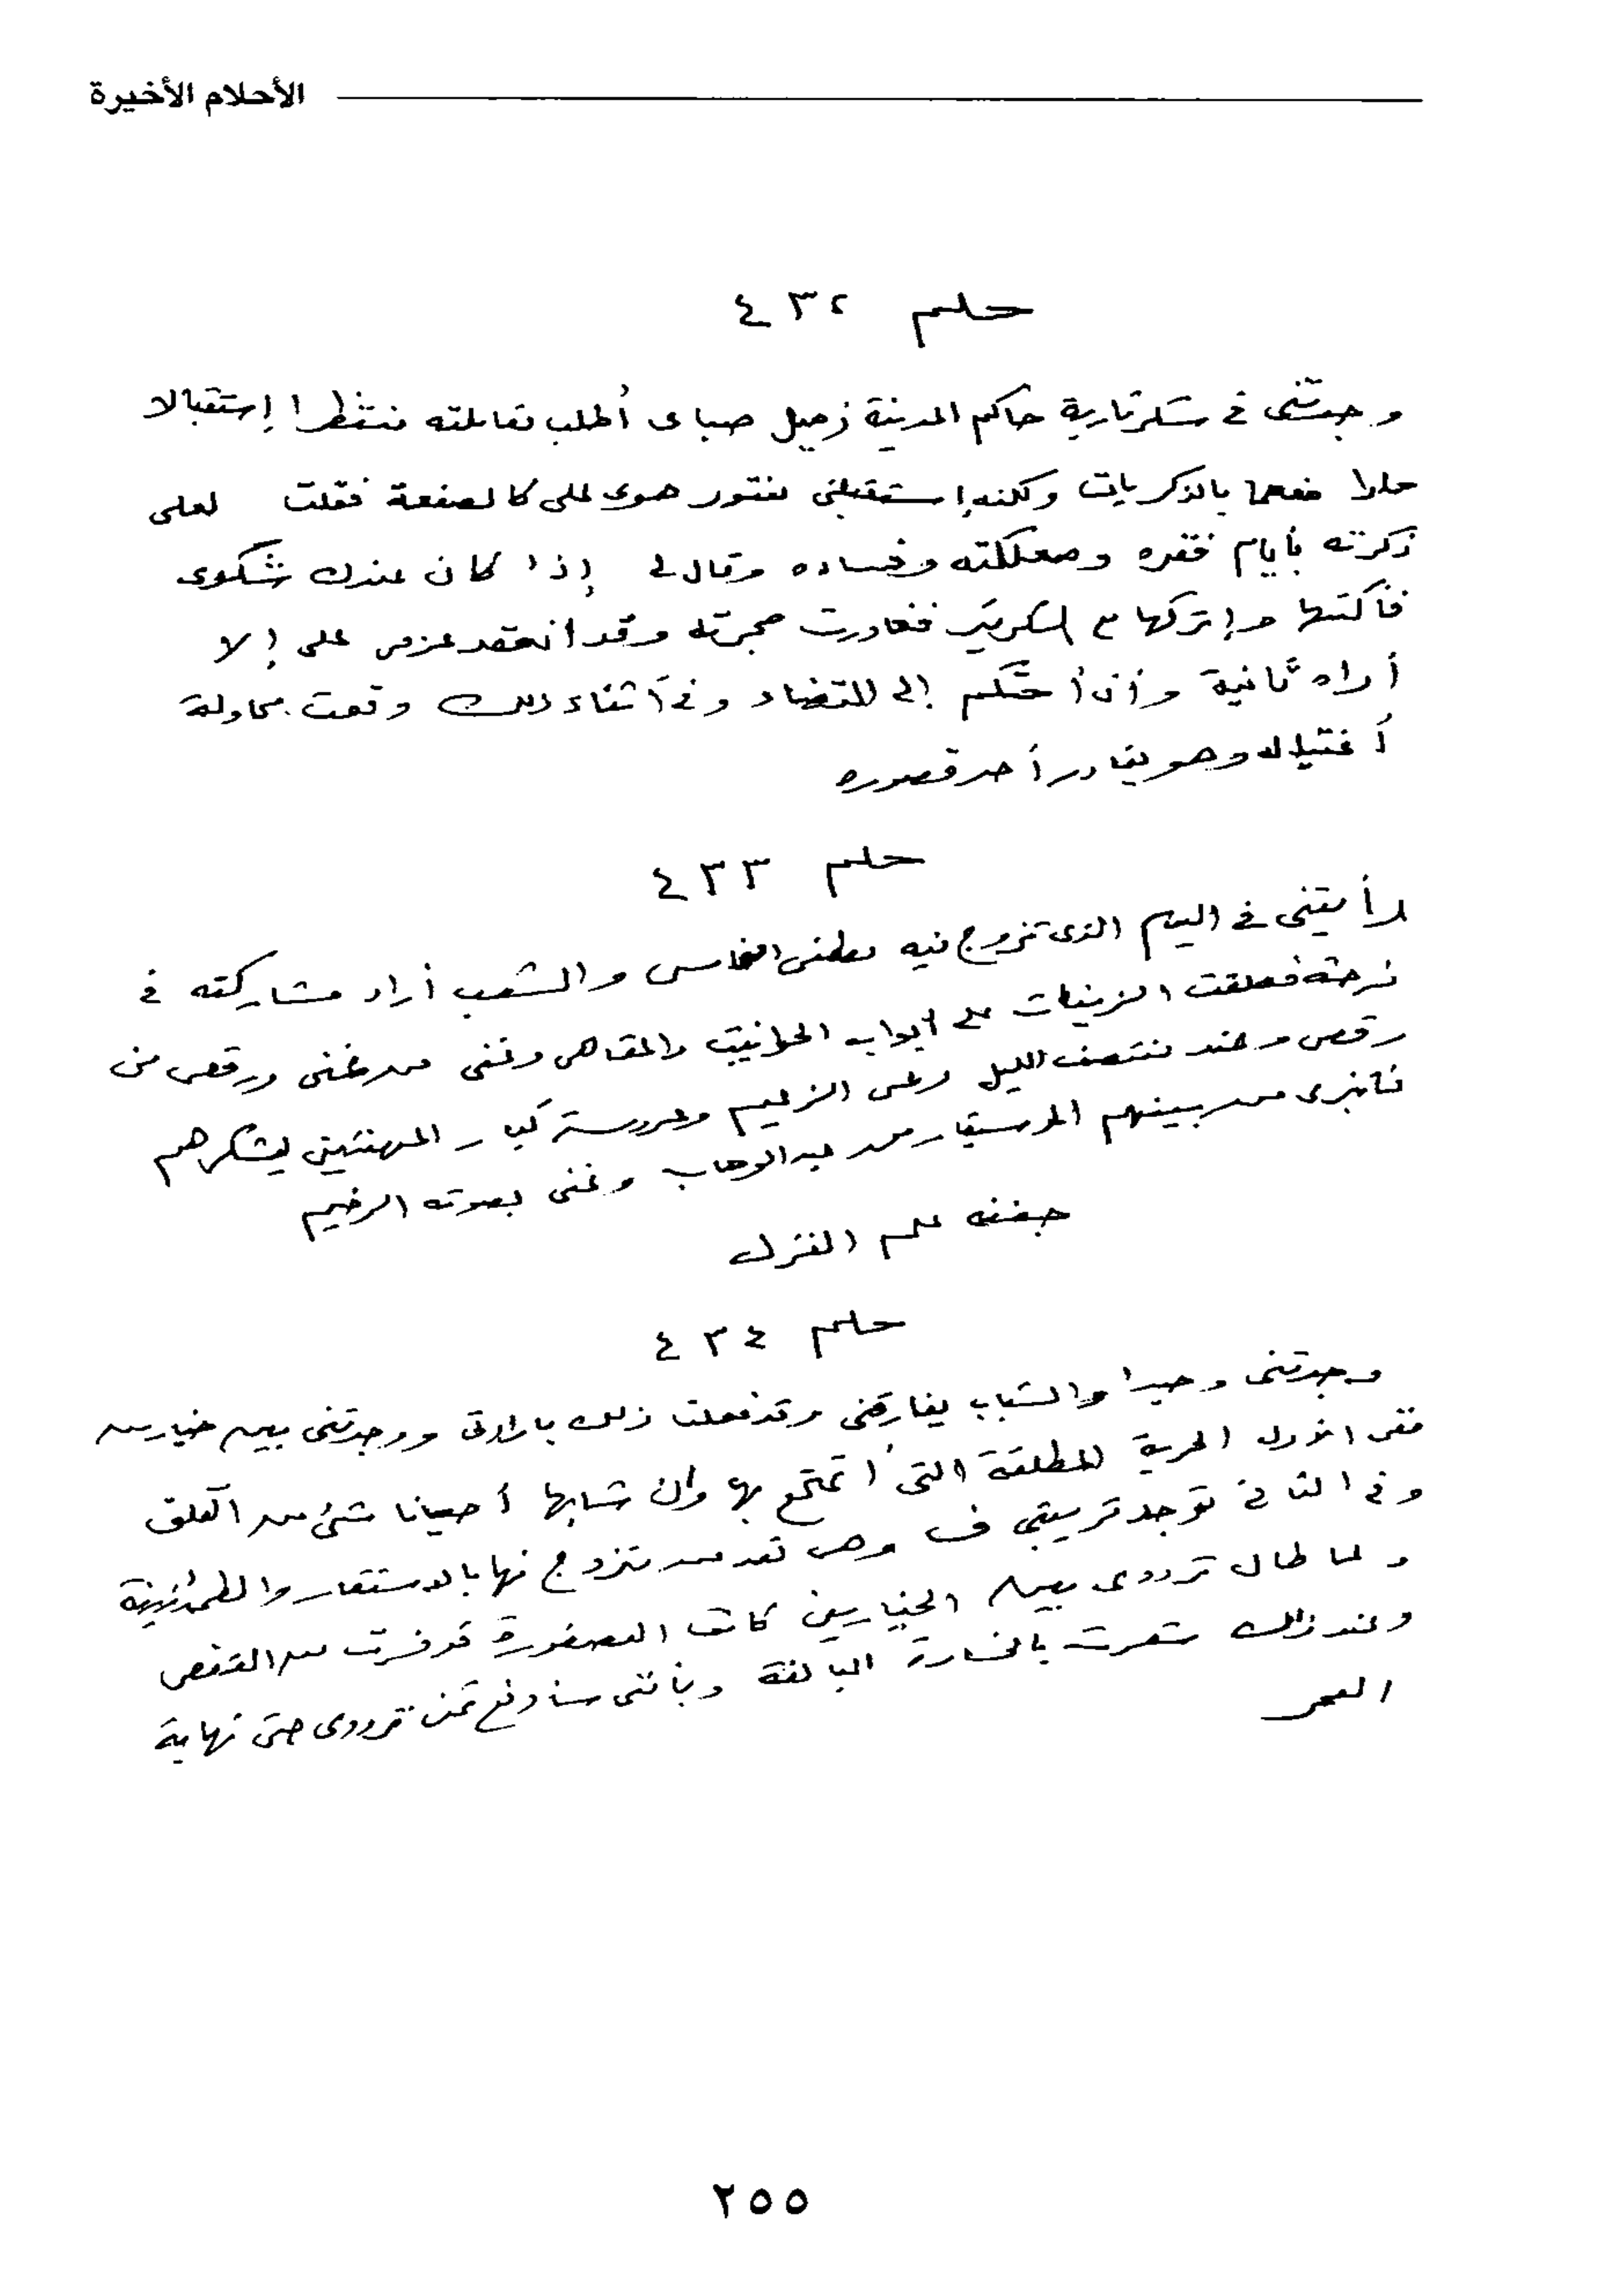 الأحلام الأخيرة
حلم ٤٣٢
وجدتنى فى سكرتارية حاكم المدينة زميل صباى أطلب مقابلته منتظرا إستقبالا
حارا مفعما بالذكريات ولكنه إستقبلنى بفتور هوى على كالصفعة فقلت لعلى
ذكرته بأيام فقره وصعلكته وفساده وقال لى إذا كان عندك شكوى
فأكتبها وإتركها مع السكرتير فغادرت حجرته وقد انعقد عزمى على إلا
أراه ثانية وأن أحتكم إلى للقضاء وفى أثناء ذلك وقعت محاولة
أغتياله وهو يغادر أحد قصوره
حلم ٤٣٣
رأيتنى فى اليوم الذى تزوج فيه مصطفى النحاس والشعب أراد مشاركته فى
فرحته فعلقت الزينات على أبواب الحوانيت والمقاهى وغنى من غنى ورقص من
رقص وعند منتصف الليل دعى الزعيم وعروسه كبار المهنئين ليشكرهم
فانبرى من بينهم الموسيقار محمد عبد الوهاب وغنى بصوته الرخيم
جفنه علم الغزل
حلم ٤٣٤
وجدتنى وحيدا والشباب يفارقنى وقد فعلت ذلك بارادتى ووجدتنى بين خيارين
ففى الأول الحرية المطلقة التى أتمتع بها وإن شابها أحيانا شئ من القلق
وفى الثانى توجد قريبتى ف وهى تعد من يتزوج منها بالاستقرار والطمأنينة
ولما طال ترددى بين الخيارين كانت العصفورة قد فرت من القفص
وعند ذلك شعرت بالخسارة البالغة وبأننى سأدفع ثمن ترددى حتى نهاية
العمر
٢٥٥